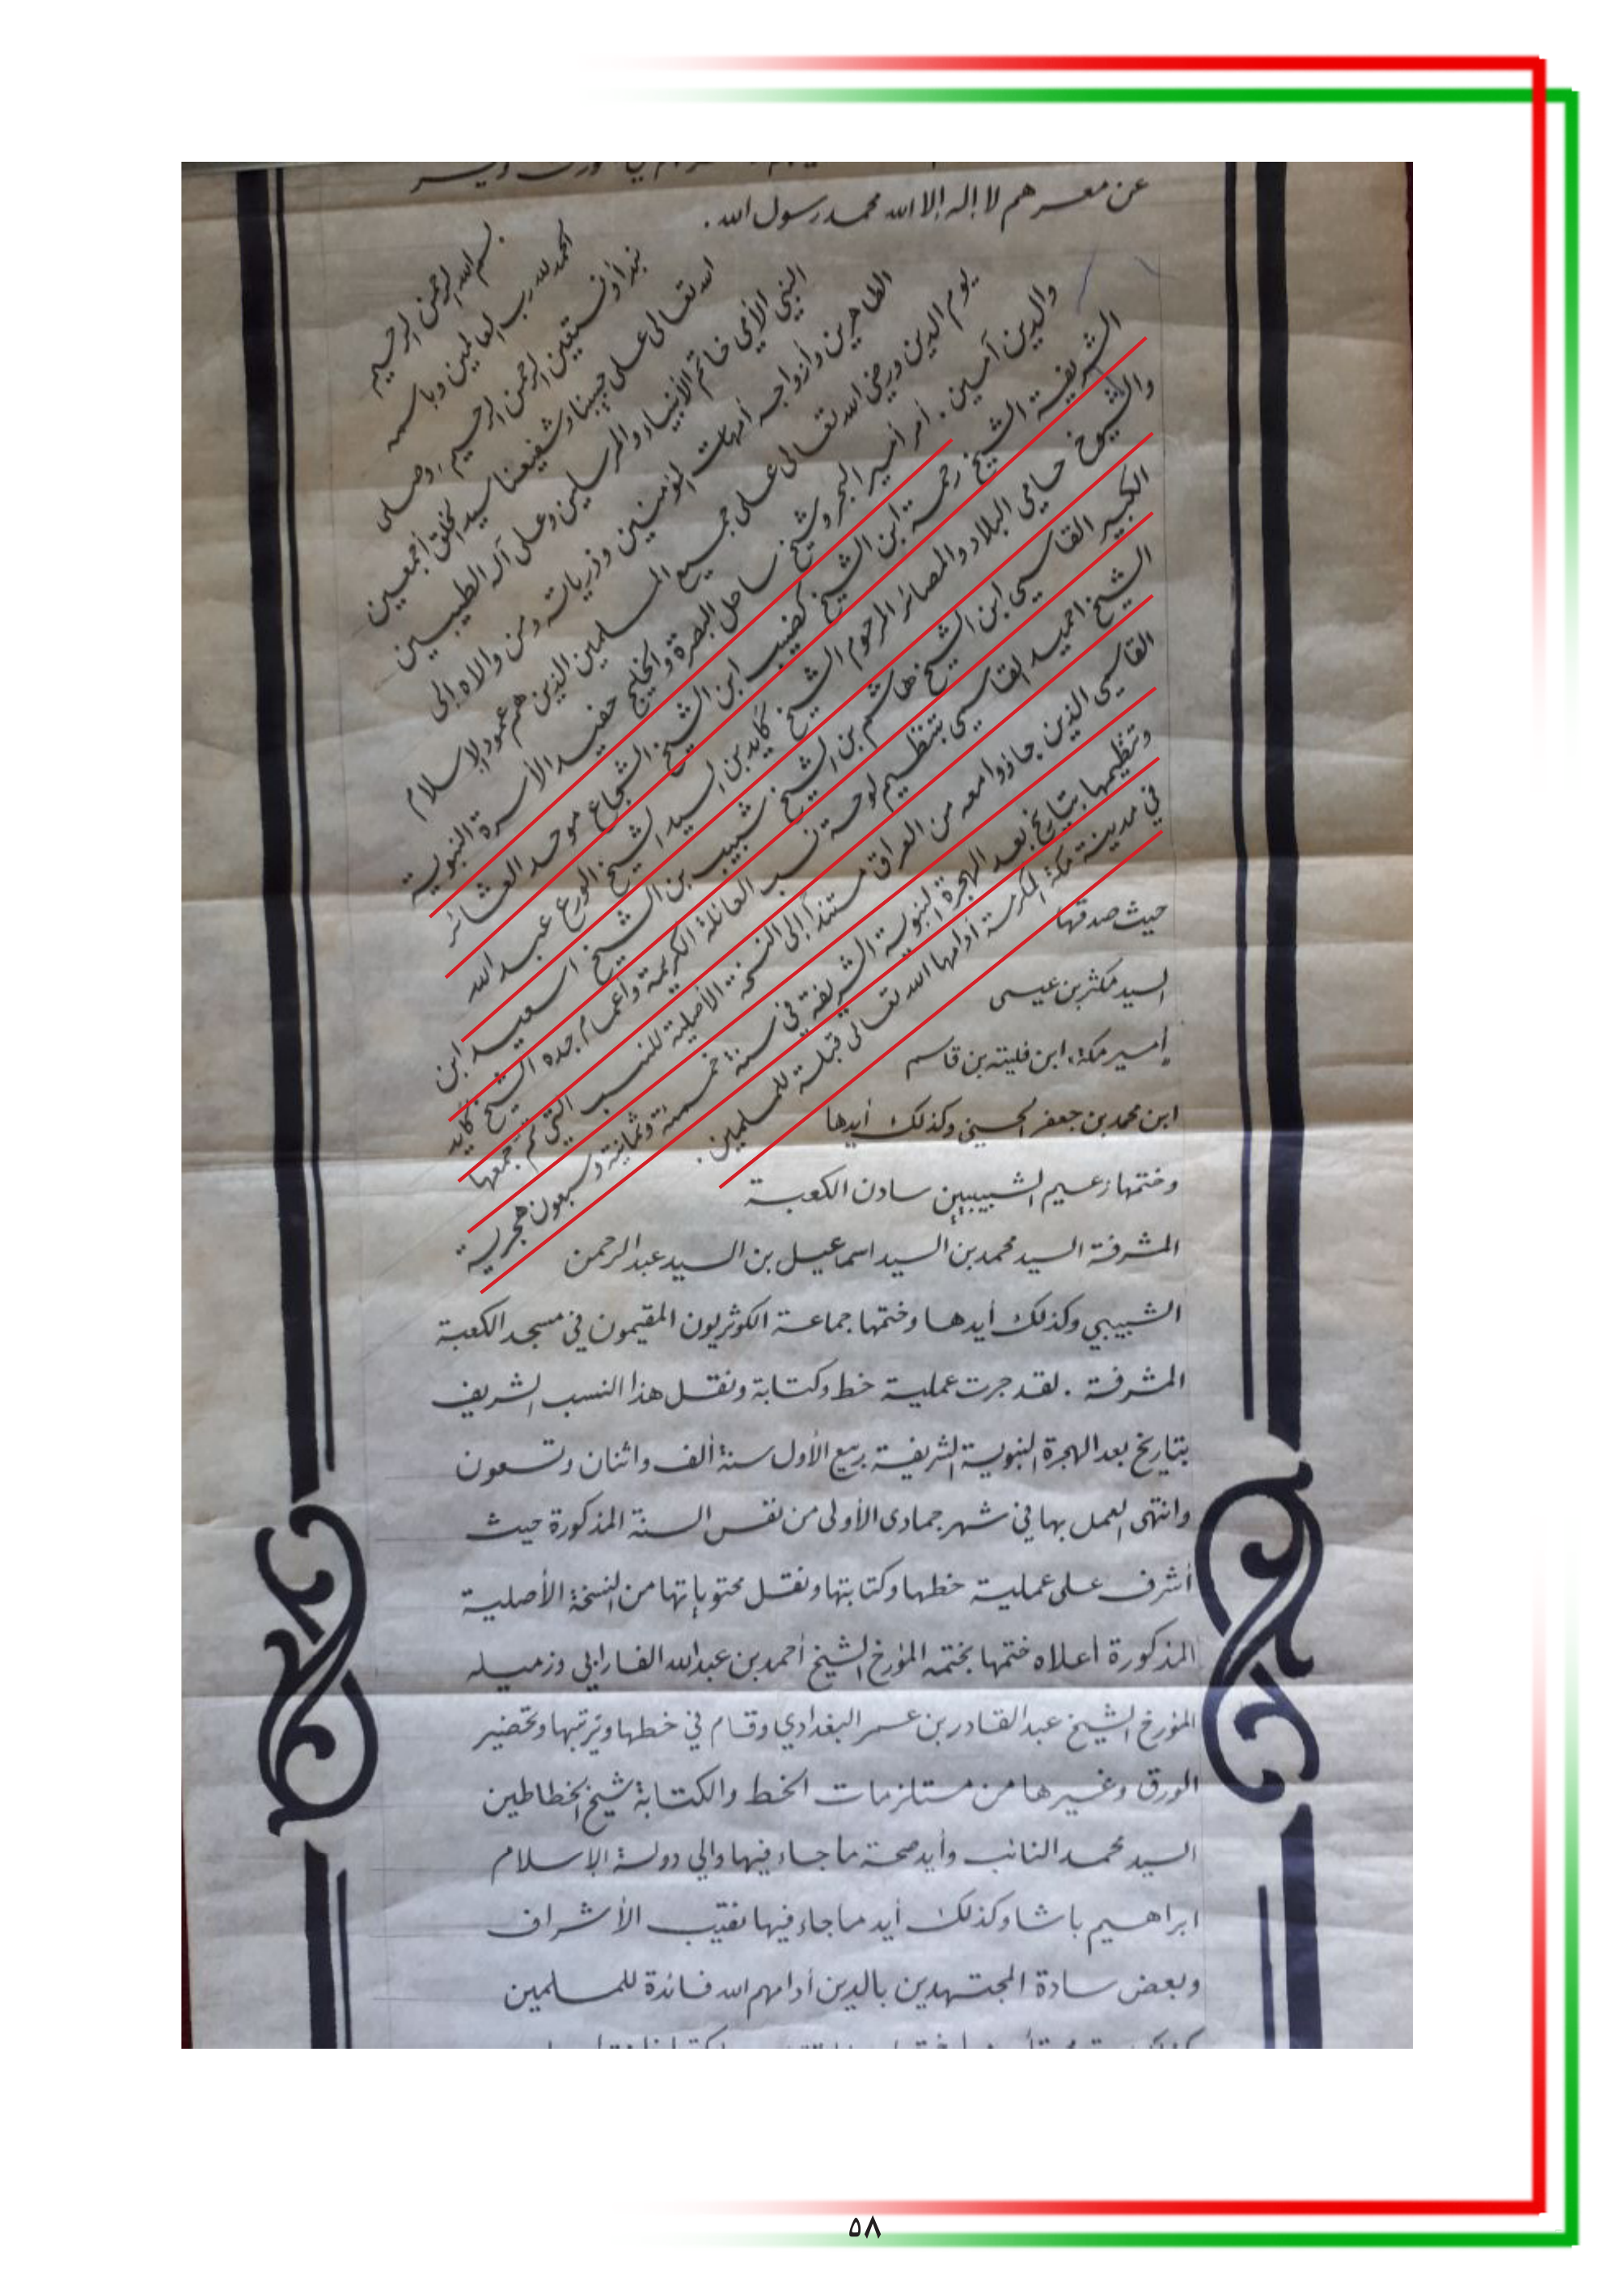 عن معسرهم لا إله إلا الله محمد رسول الله .
بسم الله الرحمن الرحيم
الحمد لله رب العالمين وباسمه
نبدأ ونستعين الرحمن الرحيم ، وصلى
الله تعالى على حبيبنا وشفيعنا سيد الخلق أجمعين
النبي الأمي خاتم الأنبياء والمرسلين وعلى آله الطيبين
الطاهرين وأزواجه أمهات المؤمنين وذرياته ومن والاه إلى
يوم الدين ورضي الله تعالى على جميع المسلمين الذين هم عمود الإسلام
والدين آمين . أمر أمير البحر وشيخ ساحل البصرة والخليج حفيد الأسرة النبوية
الشريفة الشيخ رحمة ابن الشيخ كضيب ابن الشيخ الشجاع موحد العشائر
والشيوخ حامي البلاد والمصائر المرحوم الشيخ گايد بن السيد الشيخ الورع عبد الله
الكبير القاسمي ابن الشيخ هاشم بن الشيخ شبيب بن الشيخ اسعيد ابن
الشيخ احميد القاسمي بتنظيم لوحة نسب العائلة الكريمة واعمام جده الشيخ گايد
القاسمي الذين جاؤوا معه من العراق مستندا إلى النسخة الأصلية للنسب التي تم جمعها
وتنظيمها بتاريخ بعد الهجرة النبوية الشريفة في سنة خمسمئة وثمانية وسبعون هجرية
في مدينة مكة المكرمة أدامها الله تعالى قبلة للمسلمين .
حيث صدقها
السيد مكثر بن عيسى
أمير مكة ابن فليته بن قاسم
ابن محمد بن جعفر الحسني وكذلك أيدها
وختمها زعيم الشبيبيين سادن الكعبة
المشرفة السيد محمد بن السيد اسماعيل بن السيد عبد الرحمن
الشبيبي وكذلك أيدها وختمها جماعة الكوثريون المقيمون في مسجد الكعبة
المشرفة . لقد جرت عملية خط وكتابة ونقل هذا النسب الشريف
بتاريخ بعد الهجرة النبوية الشريفة ربيع الأول سنة ألف واثنان وتسعون
وانتهى العمل بها في شهر جمادى الأولى من نفس السنة المذكورة حيث
أشرف على عملية خطها وكتابتها ونقل محتوياتها من النسخة الأصلية
المذكورة أعلاه ختمها بختمه المؤرخ الشيخ أحمد بن عبدالله الفارابي وزميله
المؤرخ الشيخ عبد القادر بن عمر البغدادي وقام في خطها وترتبها وتحضير
الورق وغيرها من مستلزمات الخط والكتابة شيخ الخطاطين
السيد محمد النائب وأيد صحة ما جاء فيها والي دولة الإسلام
ابراهيم باشا وكذلك أيد ما جاء فيها نقيب الأشراف
وبعض سادة المجتهدين بالدين أدامهم الله فائدة للمسلمين
٥٨